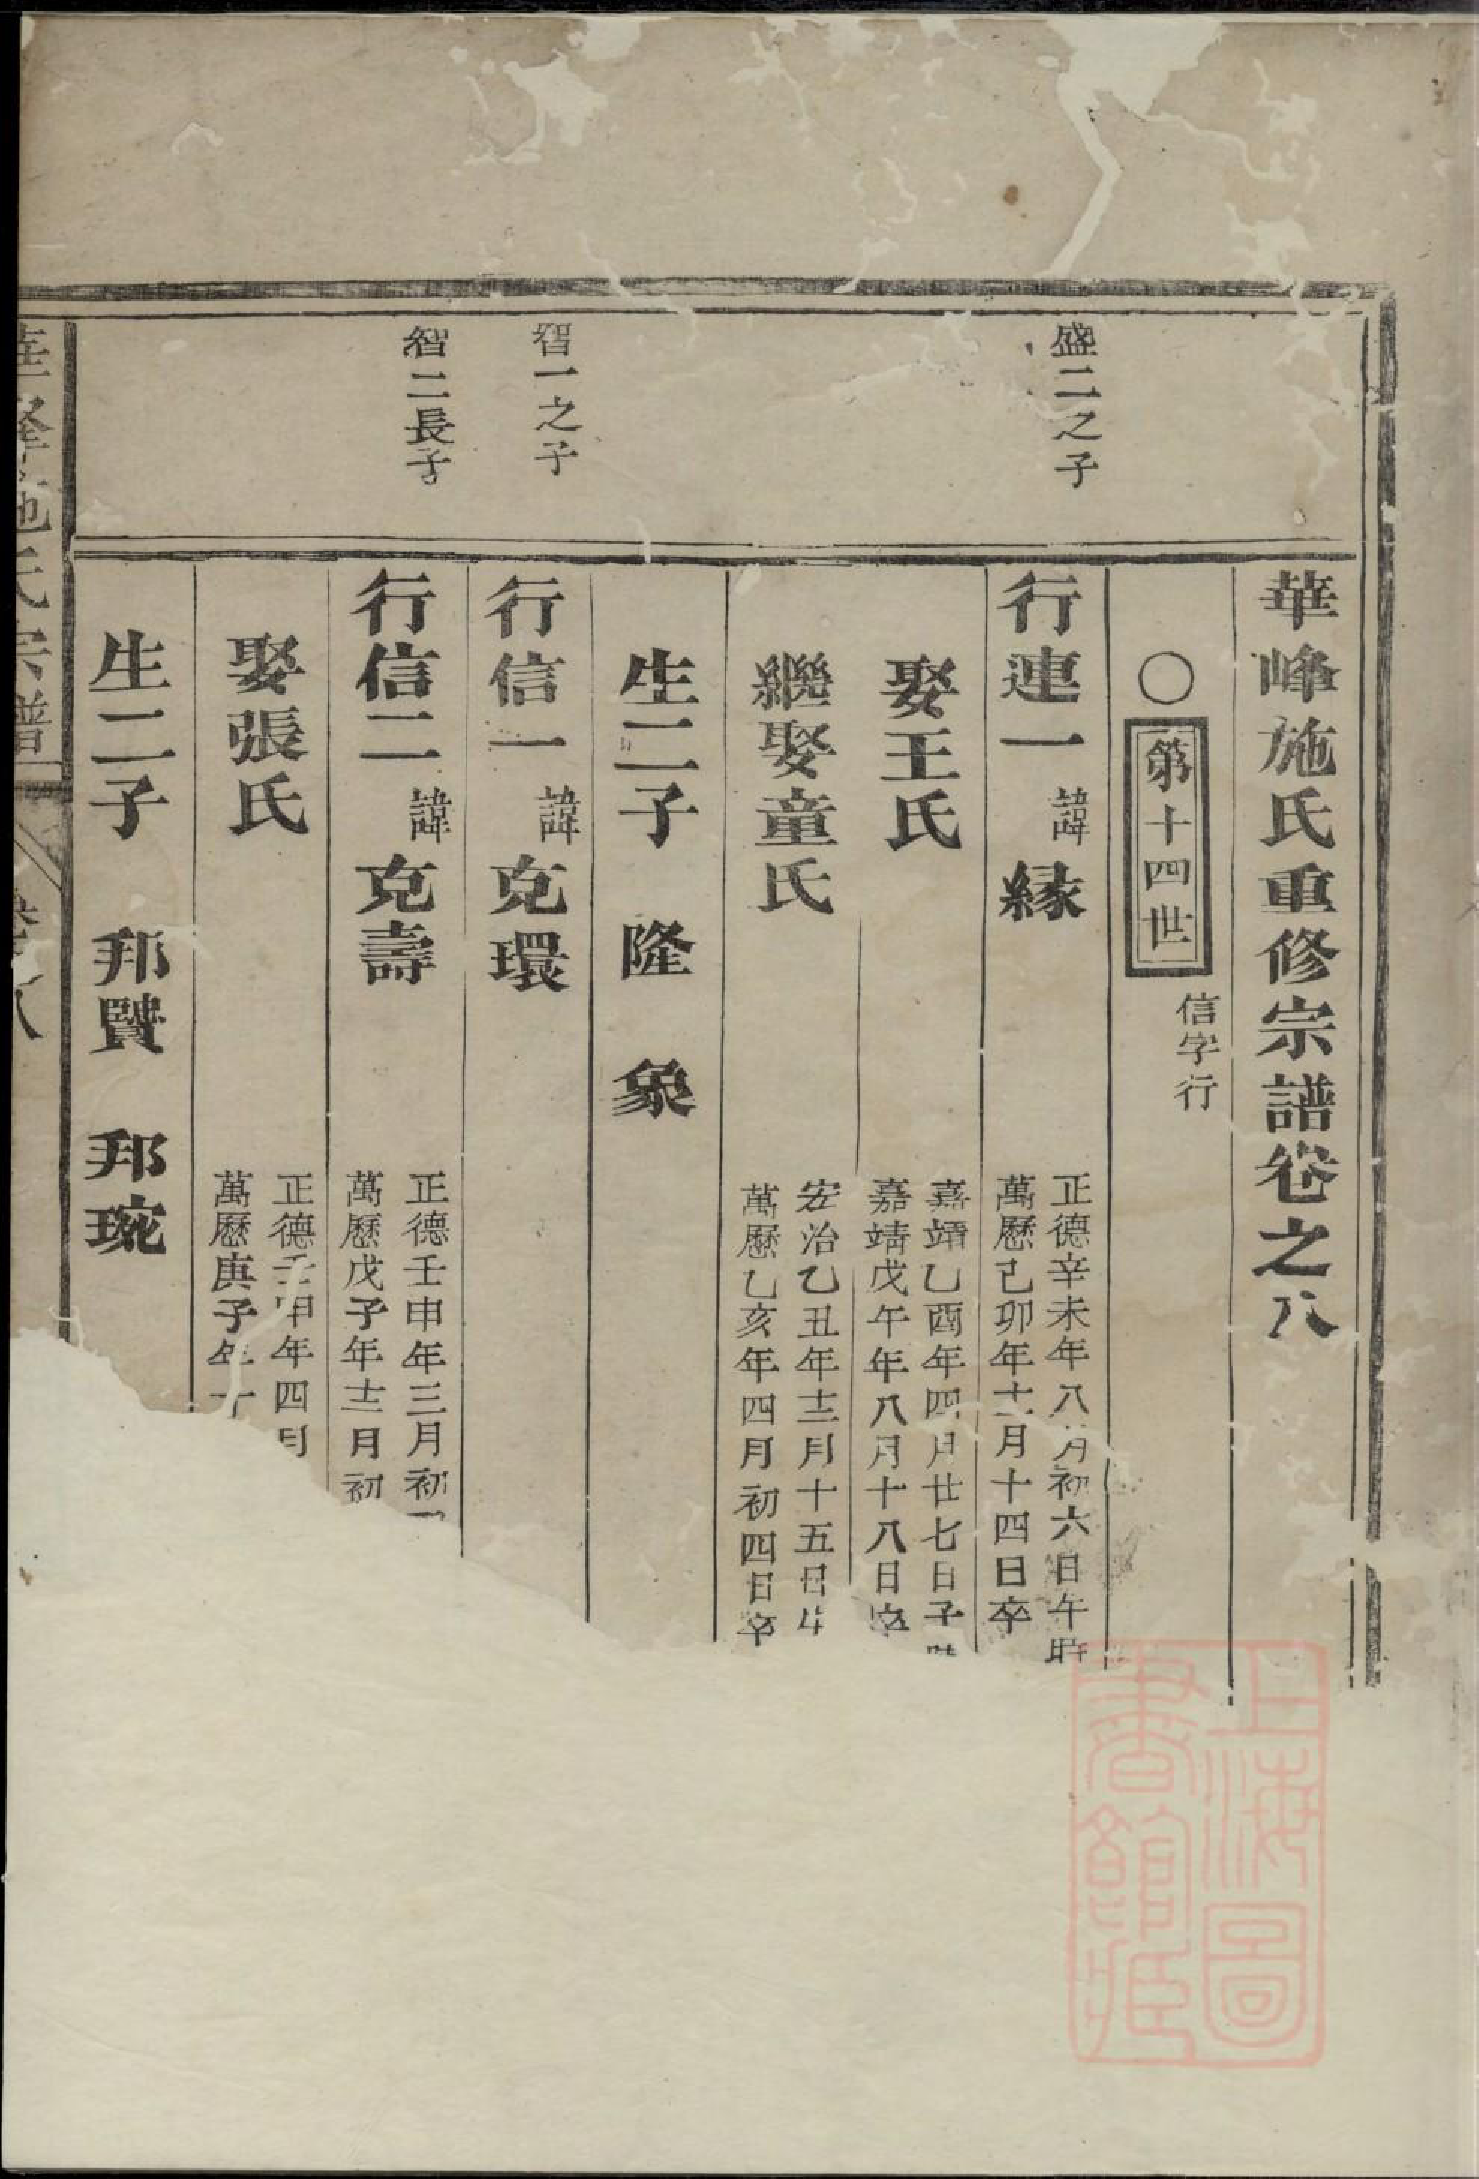 華峰施氏重修宗譜卷之八
〇第十四世
信字行
盛二之子
行連一諱緣
正德辛未年八月初六日午時
萬歷己卯年十二月十四日卒
娶王氏
嘉靖乙酉年四月廿七日子時
嘉靖戊午年八月十八日卒
繼娶童氏
宏治乙丑年十二月十五日
萬歷乙亥年四月初四日卒
生二子 隆 象
智一之子
行信一諱克環
智二長子
行信二諱克壽
正德壬申年三月初
萬歷戊子年十二月初
娶張氏
正德壬申年四月
萬歷庚子年十
生二子 邦賢 邦琬
華峰施氏宗譜
卷之八
上海圖書館藏